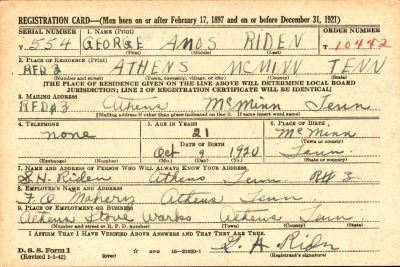 REGISTRATION CARD—(Men born on or after February 17, 1897 and on or before December 31, 1921)
SERIAL NUMBER 1. NAME (Print) ORDER NUMBER
T 554 GEORGE AMOS RIDEN T 10442
(First) (Middle) (Last)
2. PLACE OF RESIDENCE (Print)
RFD 3 ATHENS MCMINN TENN
(Number and street) (Town, township, village, or city) (County) (State)
[THE PLACE OF RESIDENCE GIVEN ON THE LINE ABOVE WILL DETERMINE LOCAL BOARD
JURISDICTION; LINE 2 OF REGISTRATION CERTIFICATE WILL BE IDENTICAL]
3. MAILING ADDRESS
RFD#3 Athens McMinn Tenn
[Mailing address if other than place indicated on line 2. If same insert word same]
4. TELEPHONE 5. AGE IN YEARS 6. PLACE OF BIRTH
none 21 McMinn
DATE OF BIRTH (Town or county)
Oct 9 1920 Tenn
(Exchange) (Number) (Mo.) (Day) (Yr.) (State or country)
7. NAME AND ADDRESS OF PERSON WHO WILL ALWAYS KNOW YOUR ADDRESS
Riden Athens Tenn R#3
8. EMPLOYER'S NAME AND ADDRESS
Athens Tenn
9. PLACE OF EMPLOYMENT OR BUSINESS
Athens Stove Works Athens Tenn
(Number and street or R. F. D. number) (Town) (County) (State)
I AFFIRM THAT I HAVE VERIFIED ABOVE ANSWERS AND THAT THEY ARE TRUE.
D. S. S. Form 1
(Revised 1-1-42) (over) 16—21630-1 (Registrant's signature)